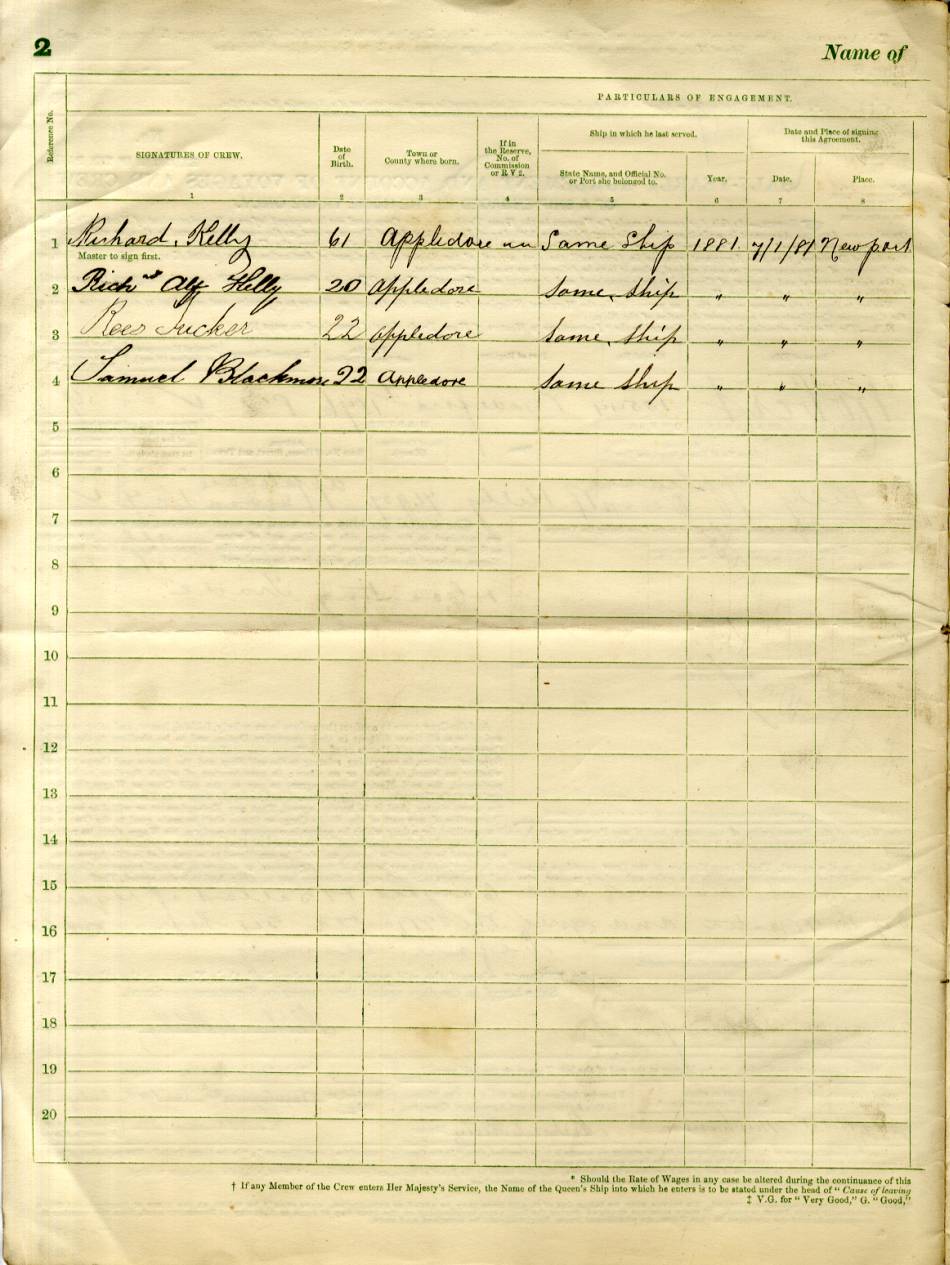 2 Name of
PARTICULARS OF ENGAGEMENT.
Reference No.
SIGNATURES OF CREW.
Date of Birth.
Town or County where born.
If in the Reserve, No. of Commission or R V 2.
Ship in which he last served.
Date and Place of signing this Agreement.
State Name, and Official No. or Port she belonged to.
Year.
Date.
Place.
1 2 3 4 5 6 7 8
1 Richard Kelly 61 Appledore Same Ship 1881 7/1/81 Newport
Master to sign first.
2 Richd Alf Kelly 20 Appledore Same ship " " "
3 Rees Tucker 22 appledore Same ship " " "
4 Samuel Blackmore 22 Appledore Same ship " " "
5
6
7
8
9
10
11
12
13
14
15
16
17
18
19
20
* Should the Rate of Wages in any case be altered during the continuance of this
† If any Member of the Crew enters Her Majesty's Service, the Name of the Queen's Ship into which he enters is to be stated under the head of "Cause of leaving
‡ V.G. for "Very Good," G. "Good,"